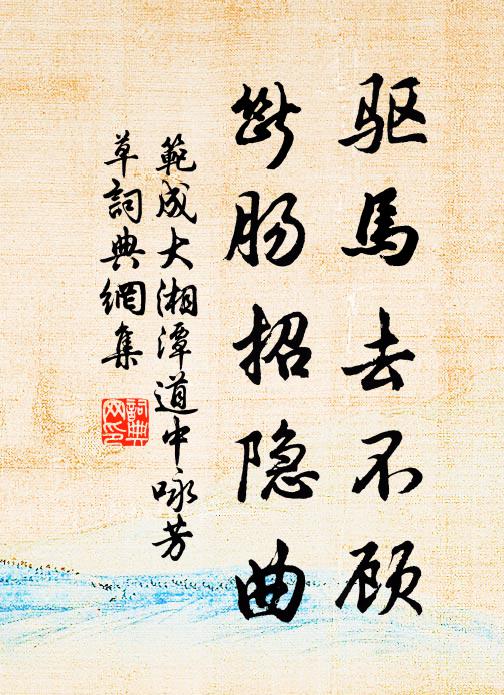 驱馬去不顾
断肠招隐曲
範成大湘潭道中咏芳
草詞典網集
詞典
网印